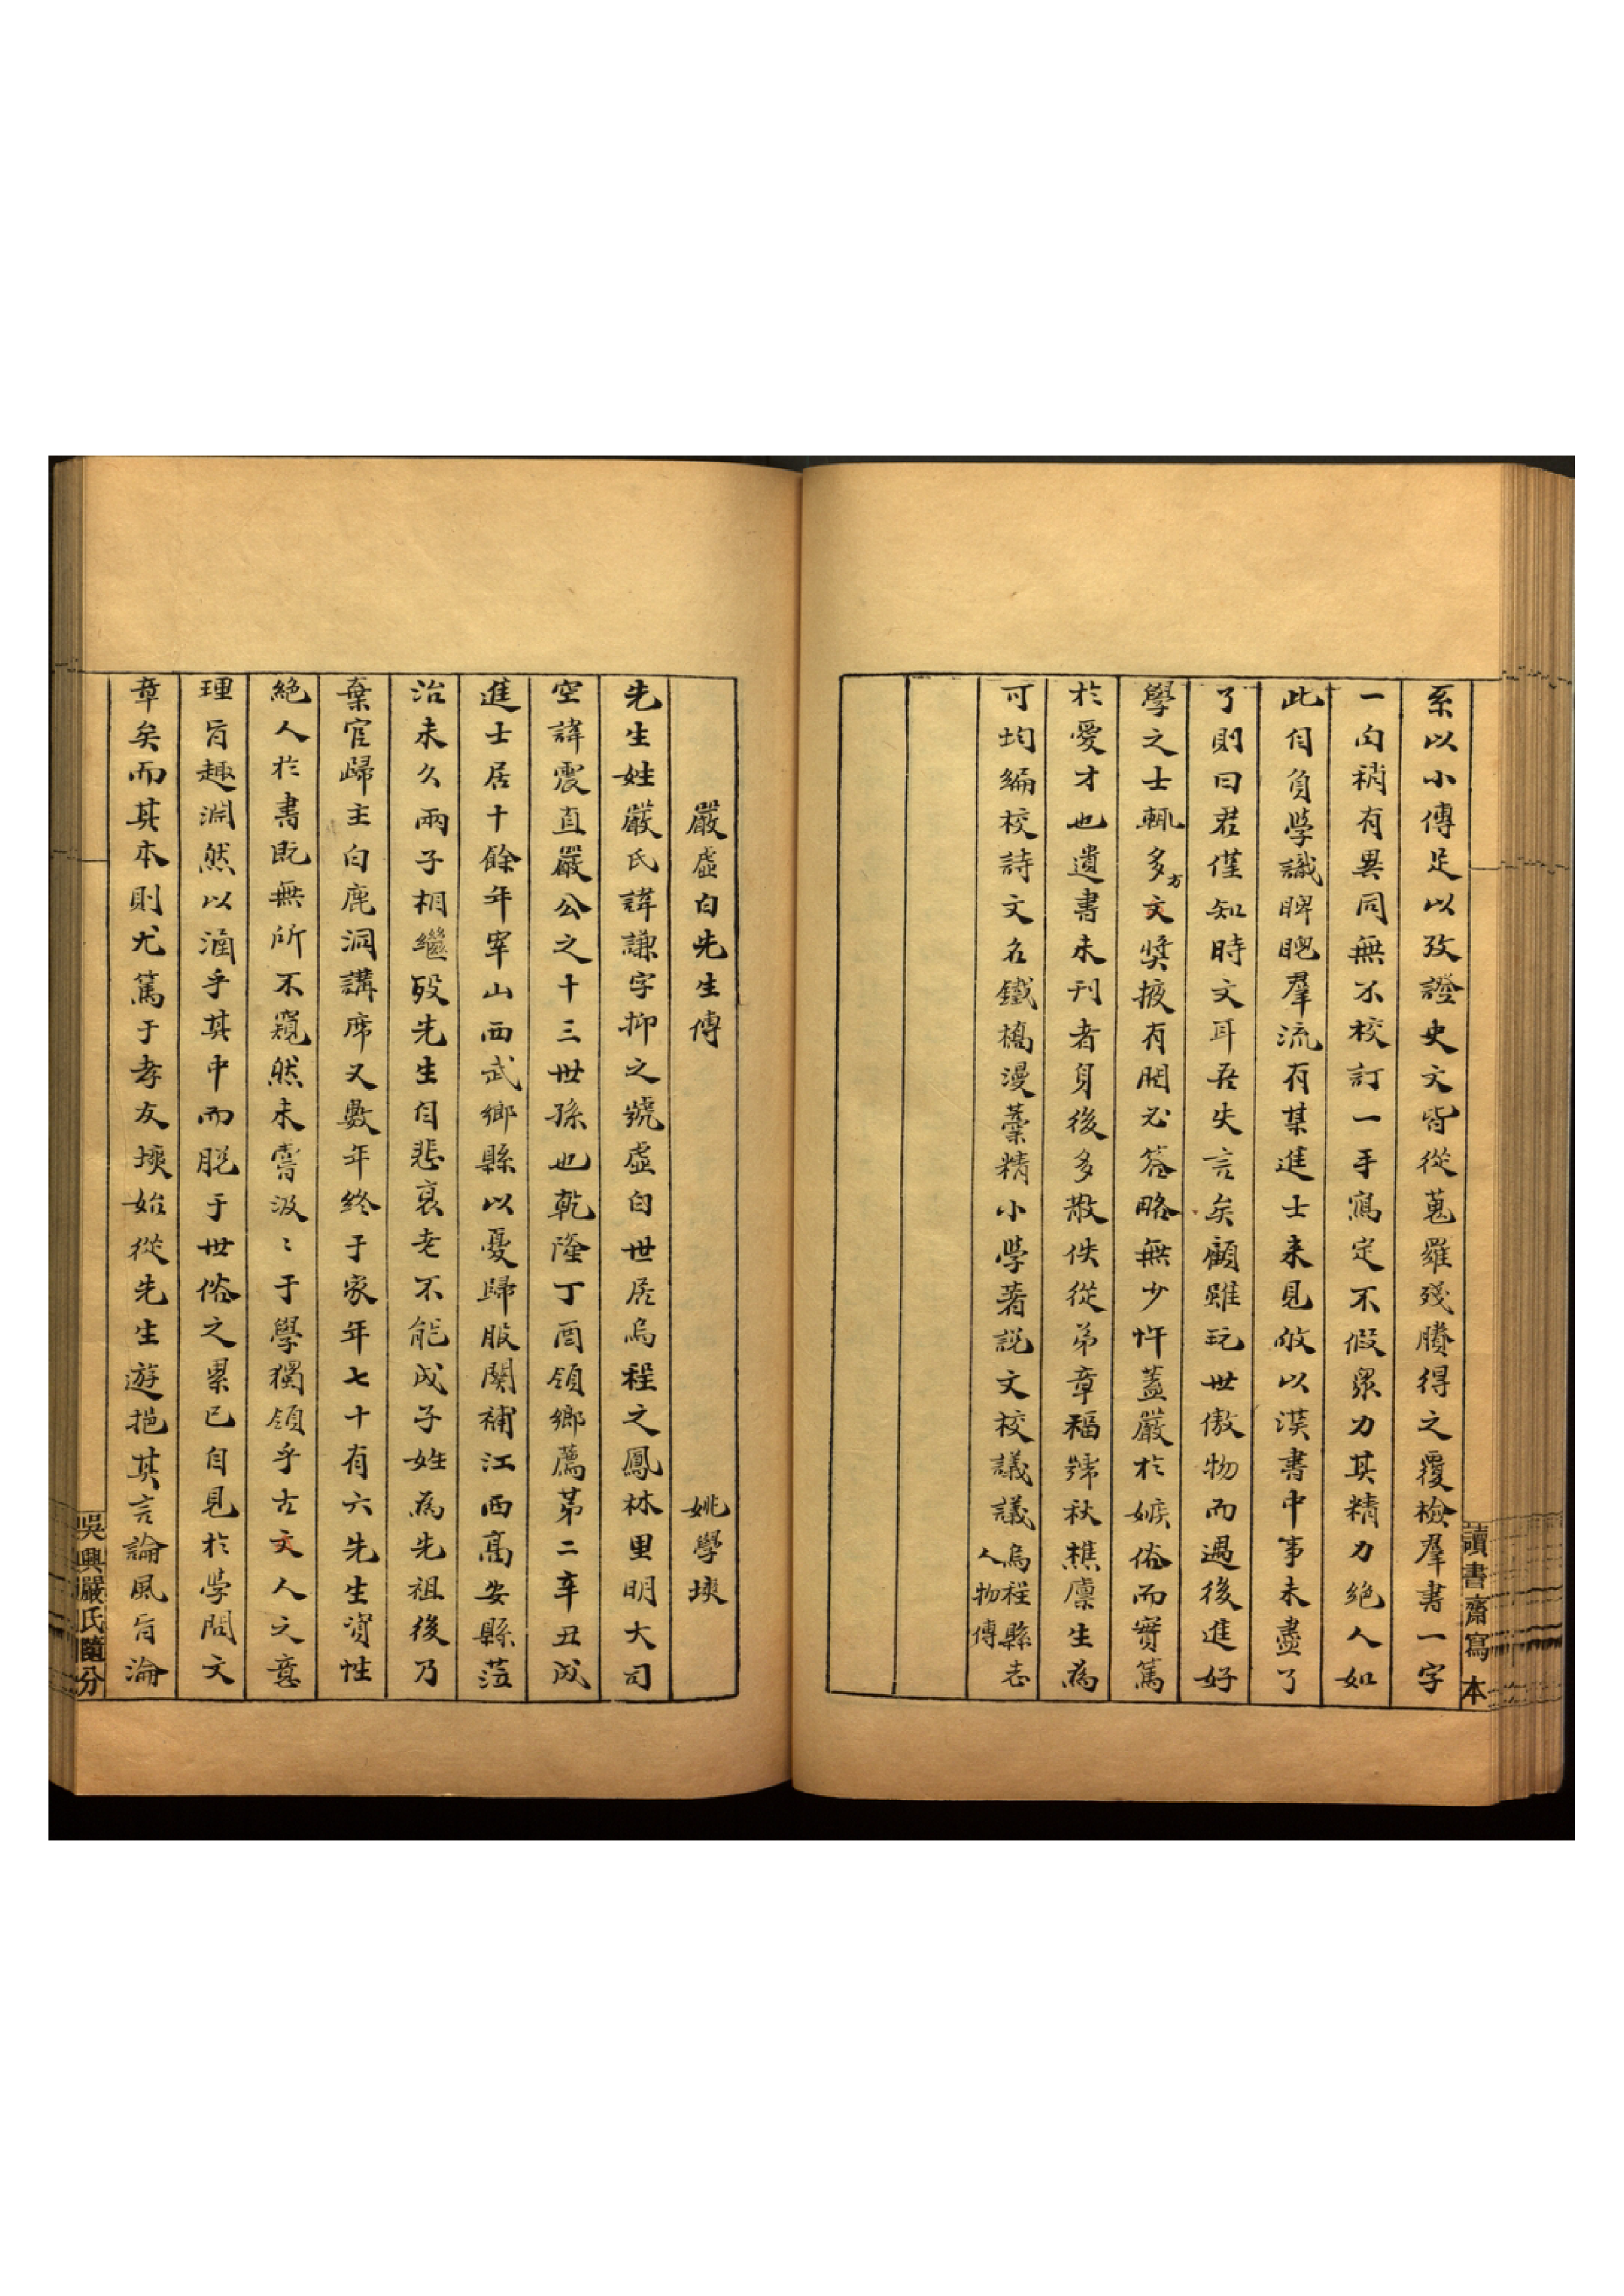 系以小傳足以攷證史文皆從蒐羅殘賸得之覆檢羣書一字
一句稍有異同無不校訂一手寫定不假眾力其精力絕人如
此自負學識睥睨羣流有某進士來見攸以漢書中事未盡了
了則曰君僅知時文耳吾失言矣顧雖玩世傲物而遇後進好
學之士輒多方文獎掖有問必答略無少忤蓋嚴於嫉俗而實篤
於愛才也遺書未刊者身後多散佚從弟章福號秋樵廩生為
可均編校詩文名鐵橋漫藁精小學著說文校議議烏程縣志人物傳
讀書齋寫本
嚴虛白先生傳 姚學塽
先生姓嚴氏諱謙字抑之號虛白世居烏程之鳳林里明大司
空諱震直嚴公之十三世孫也乾隆丁酉領鄉薦第二辛丑成
進士居十餘年宰山西武鄉縣以憂歸服闋補江西高安縣蒞
治未久兩子相繼歿先生自悲衰老不能成子姓為先祖後乃
棄官歸主白鹿洞講席又數年終于家年七十有六先生資性
絕人於書既無所不窺然未嘗汲〻于學獨領乎古文人之意
理旨趣淵然以涵乎其中而脫于世俗之累已自見於學問文
章矣而其本則尤篤于孝友塽始從先生遊挹其言論風旨淪
吳興嚴氏隨分